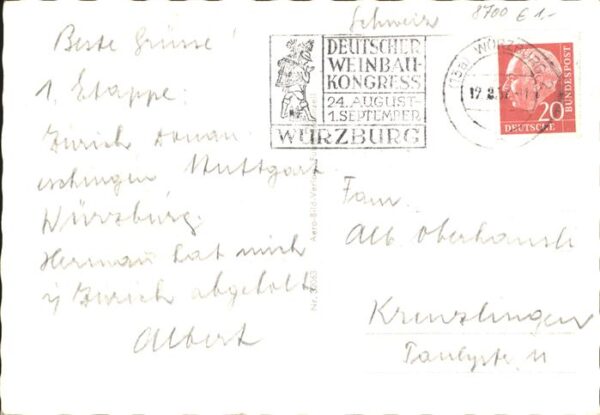 Schweiz
8700 € 1.-
Beste Grüsse!
1. Etappe:
Zürich Donau-
eschingen Stuttgart
Würzburg.
Herman hat mich
in Zürich abgeholt
Albert
DEUTSCHER
WEINBAU-
KONGRESS
24. AUGUST-
1. SEPTEMBER
WÜRZBURG
WÜRZBURG
20
DEUTSCHE
BUNDESPOST
Aero-Bild-Verlag
Nr.
Fam.
Alb. Oberhänsli
Kreuzlingen
11